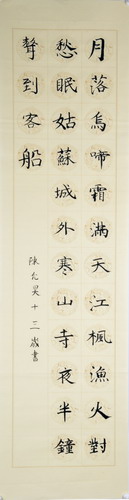 月落烏啼霜滿天江楓漁火對
愁眠姑蘇城外寒山寺夜半鐘
聲到客船
陳允昊十二歲書